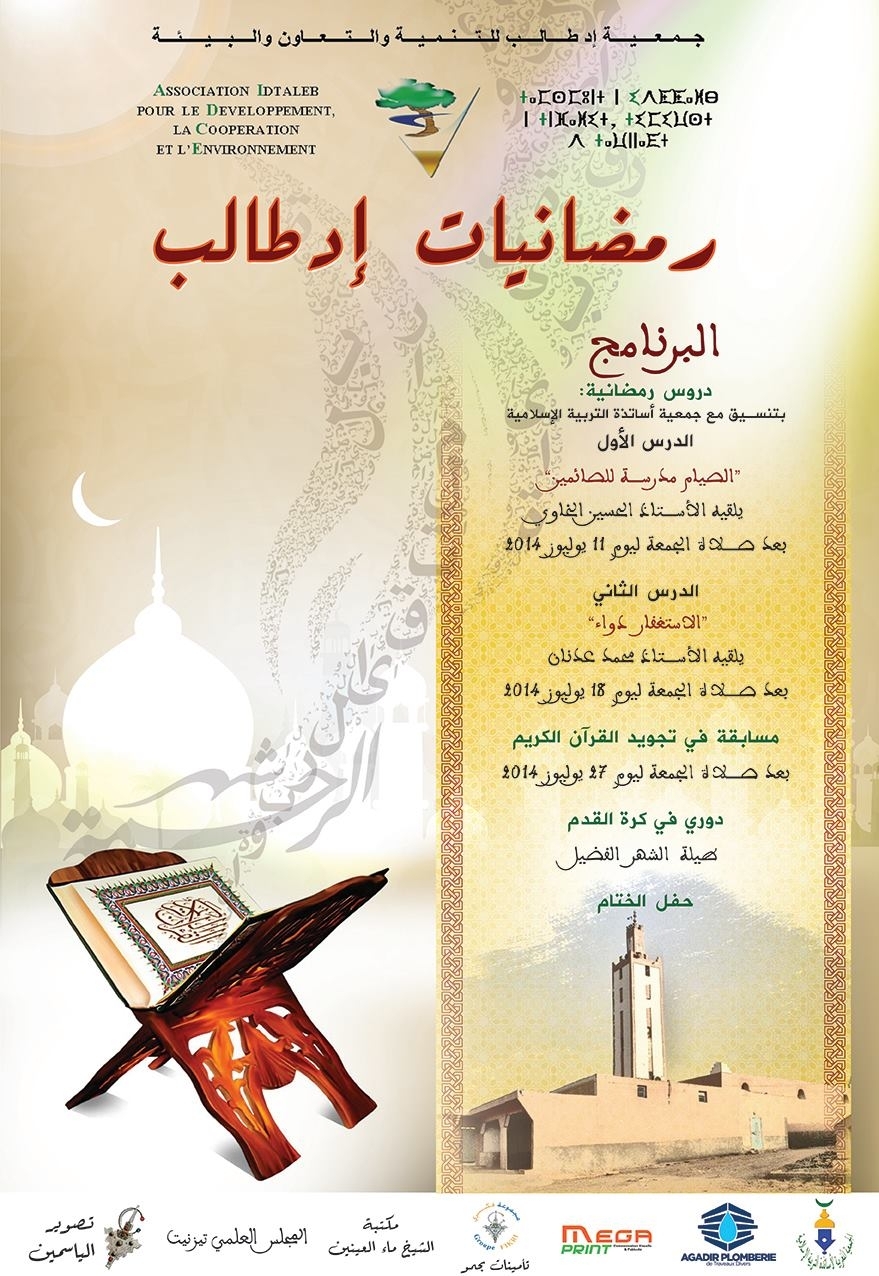 جمعية إدطالب للتنمية والتعاون والبيئة
ASSOCIATION IDTALEB
POUR LE DEVELOPPEMENT,
LA COOPERATION
ET L'ENVIRONNEMENT
رمضانيات إدطالب
البرنامج
دروس رمضانية:
بتنسيق مع جمعية أساتذة التربية الإسلامية
الدرس الأول
"الصيام مدرسة للصائمين"
يلقيه الأستاذ الحسين الخاوي
بعد صلاة الجمعة ليوم 11 يوليوز 2014
الدرس الثاني
"الاستغفار دواء"
يلقيه الأستاذ محمد عدنان
بعد صلاة الجمعة ليوم 18 يوليوز 2014
مسابقة في تجويد القرآن الكريم
بعد صلاة الجمعة ليوم 27 يوليوز 2014
دوري في كرة القدم
طيلة الشهر الفضيل
حفل الختام
شهر
الرحمة
AGADIR PLOMBERIE
de Traveaux Divers
MEGA
PRINT
Groupe FIKRI
تأمينات بجمو
مكتبة
الشيخ ماء العينين
المجلس العلمي تيزنيت
تصوير
الياسمين